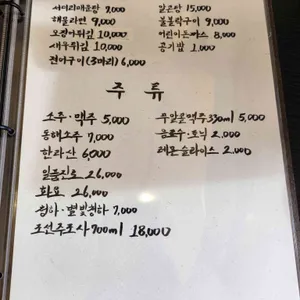 서더리매운탕 9,000
해물라면 9,000
오징어튀김 10,000
새우튀김 10,000
전어구이(3마리) 6,000
알곤탕 15,000
볼볼락구이 9,000
어린이돈까스 8,000
공기밥 1,000
주류
소주·맥주 5,000
동해소주 7,000
한라산 6,000
일품진로 26,000
화요 26,000
청하·별빛청하 7,000
조선주조사 700ml 18,000
무알콜맥주 330ml 5,000
음료수·토닉 2,000
레몬슬라이스 2,000